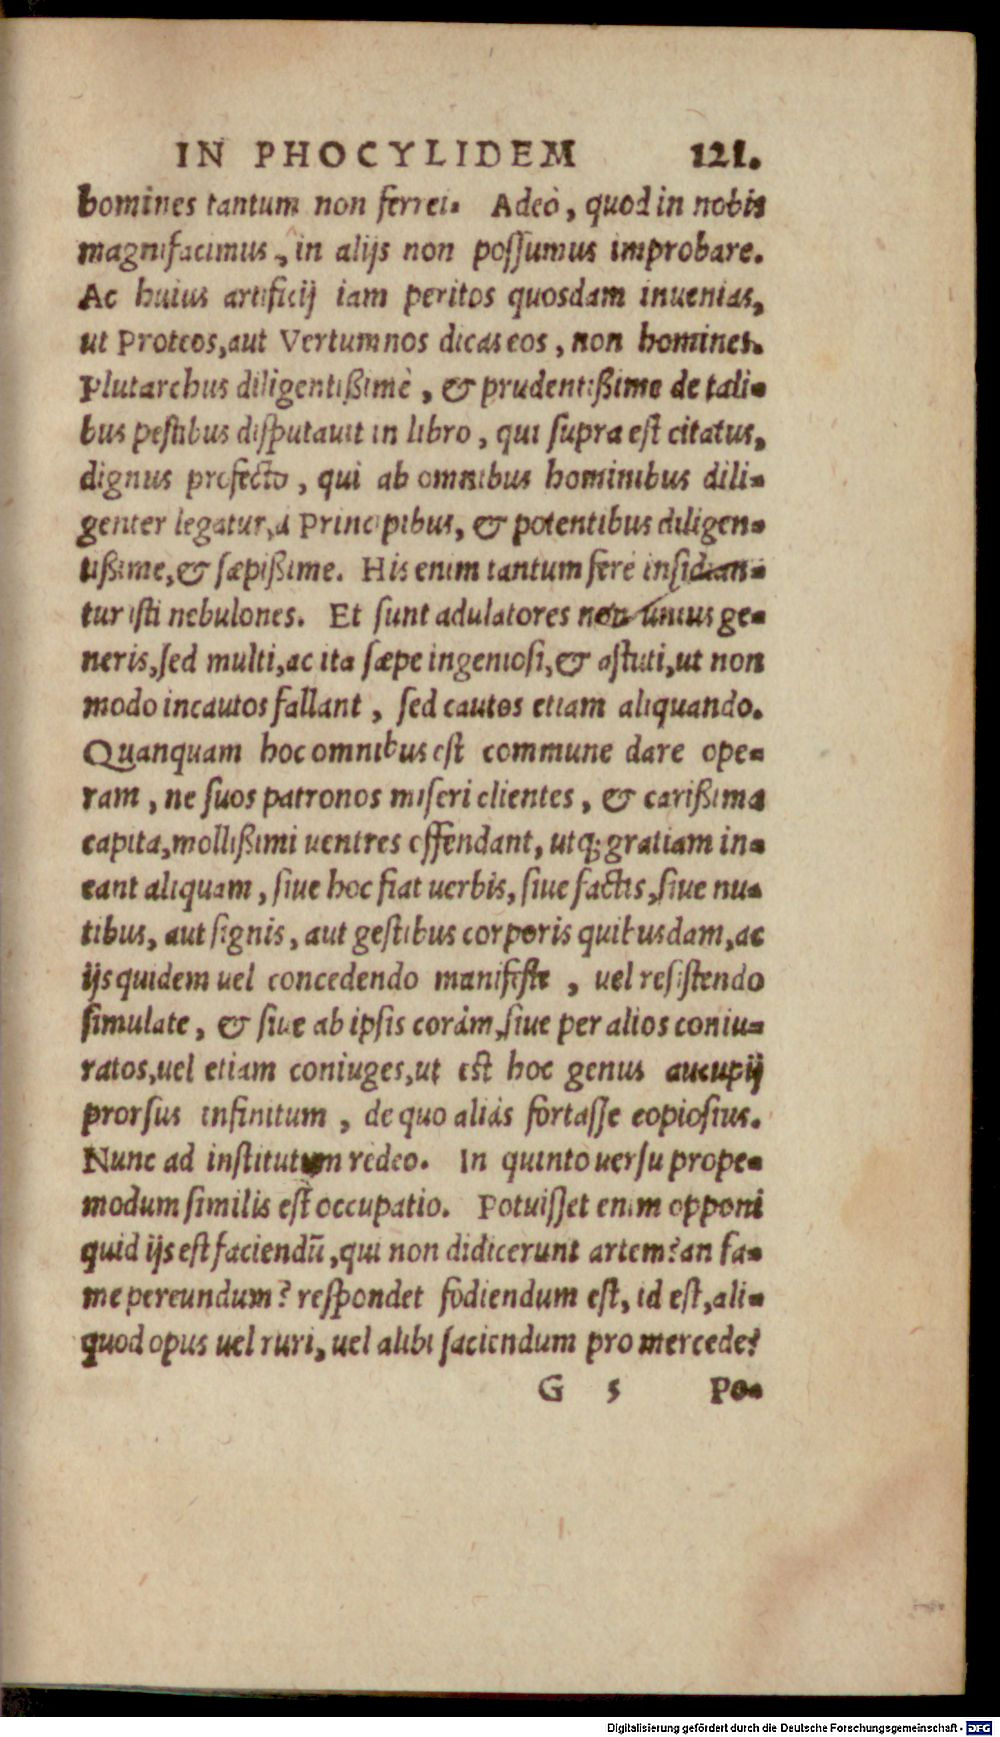 IN PHOCYLIDEM 121.
homines tantum non ferrei. Adeò, quod in nobis
magnifacimus, in alijs non possumus improbare.
Ac huius artificij iam peritos quosdam inuenias,
ut Proteos, aut Vertumnos dicas eos, non homines.
Plutarchus diligentißimè, & prudentißime de tali-
bus pestibus disputauit in libro, qui supra est citatus,
dignus profecto, qui ab omnibus hominibus dili-
genter legatur, à Principibus, & potentibus diligen-
tißime, & sæpißime. His enim tantum ferè insidian-
tur isti nebulones. Et sunt adulatores non unius ge-
neris, sed multi, ac ita sæpe ingeniosi, & astuti, ut non
modo incautos fallant, sed cautos etiam aliquando.
Quanquam hoc omnibus est commune dare ope-
ram, ne suos patronos miseri clientes, & carißima
capita, mollißimi uentres offendant, utq; gratiam in-
eant aliquam, siue hoc fiat uerbis, siue factis, siue nu-
tibus, aut signis, aut gestibus corporis quibusdam, ac
ijs quidem uel concedendo manifeste, uel resistendo
simulate, & siue ab ipsis coràm, siue per alios coniu-
ratos, uel etiam coniuges, ut est hoc genus aucupij
prorsus infinitum, de quo aliàs fortasse copiosius.
Nunc ad institutum redeo. In quinto uersu prope-
modum similis est occupatio. Potuisset enim opponi
quid ijs est faciendū, qui non didicerunt artem? an fa-
me pereundum? respondet fodiendum est, id est, ali-
quod opus uel ruri, uel alibi faciendum pro mercede?
G 5 Po-
Digitalisierung gefördert durch die Deutsche Forschungsgemeinschaft - DFG